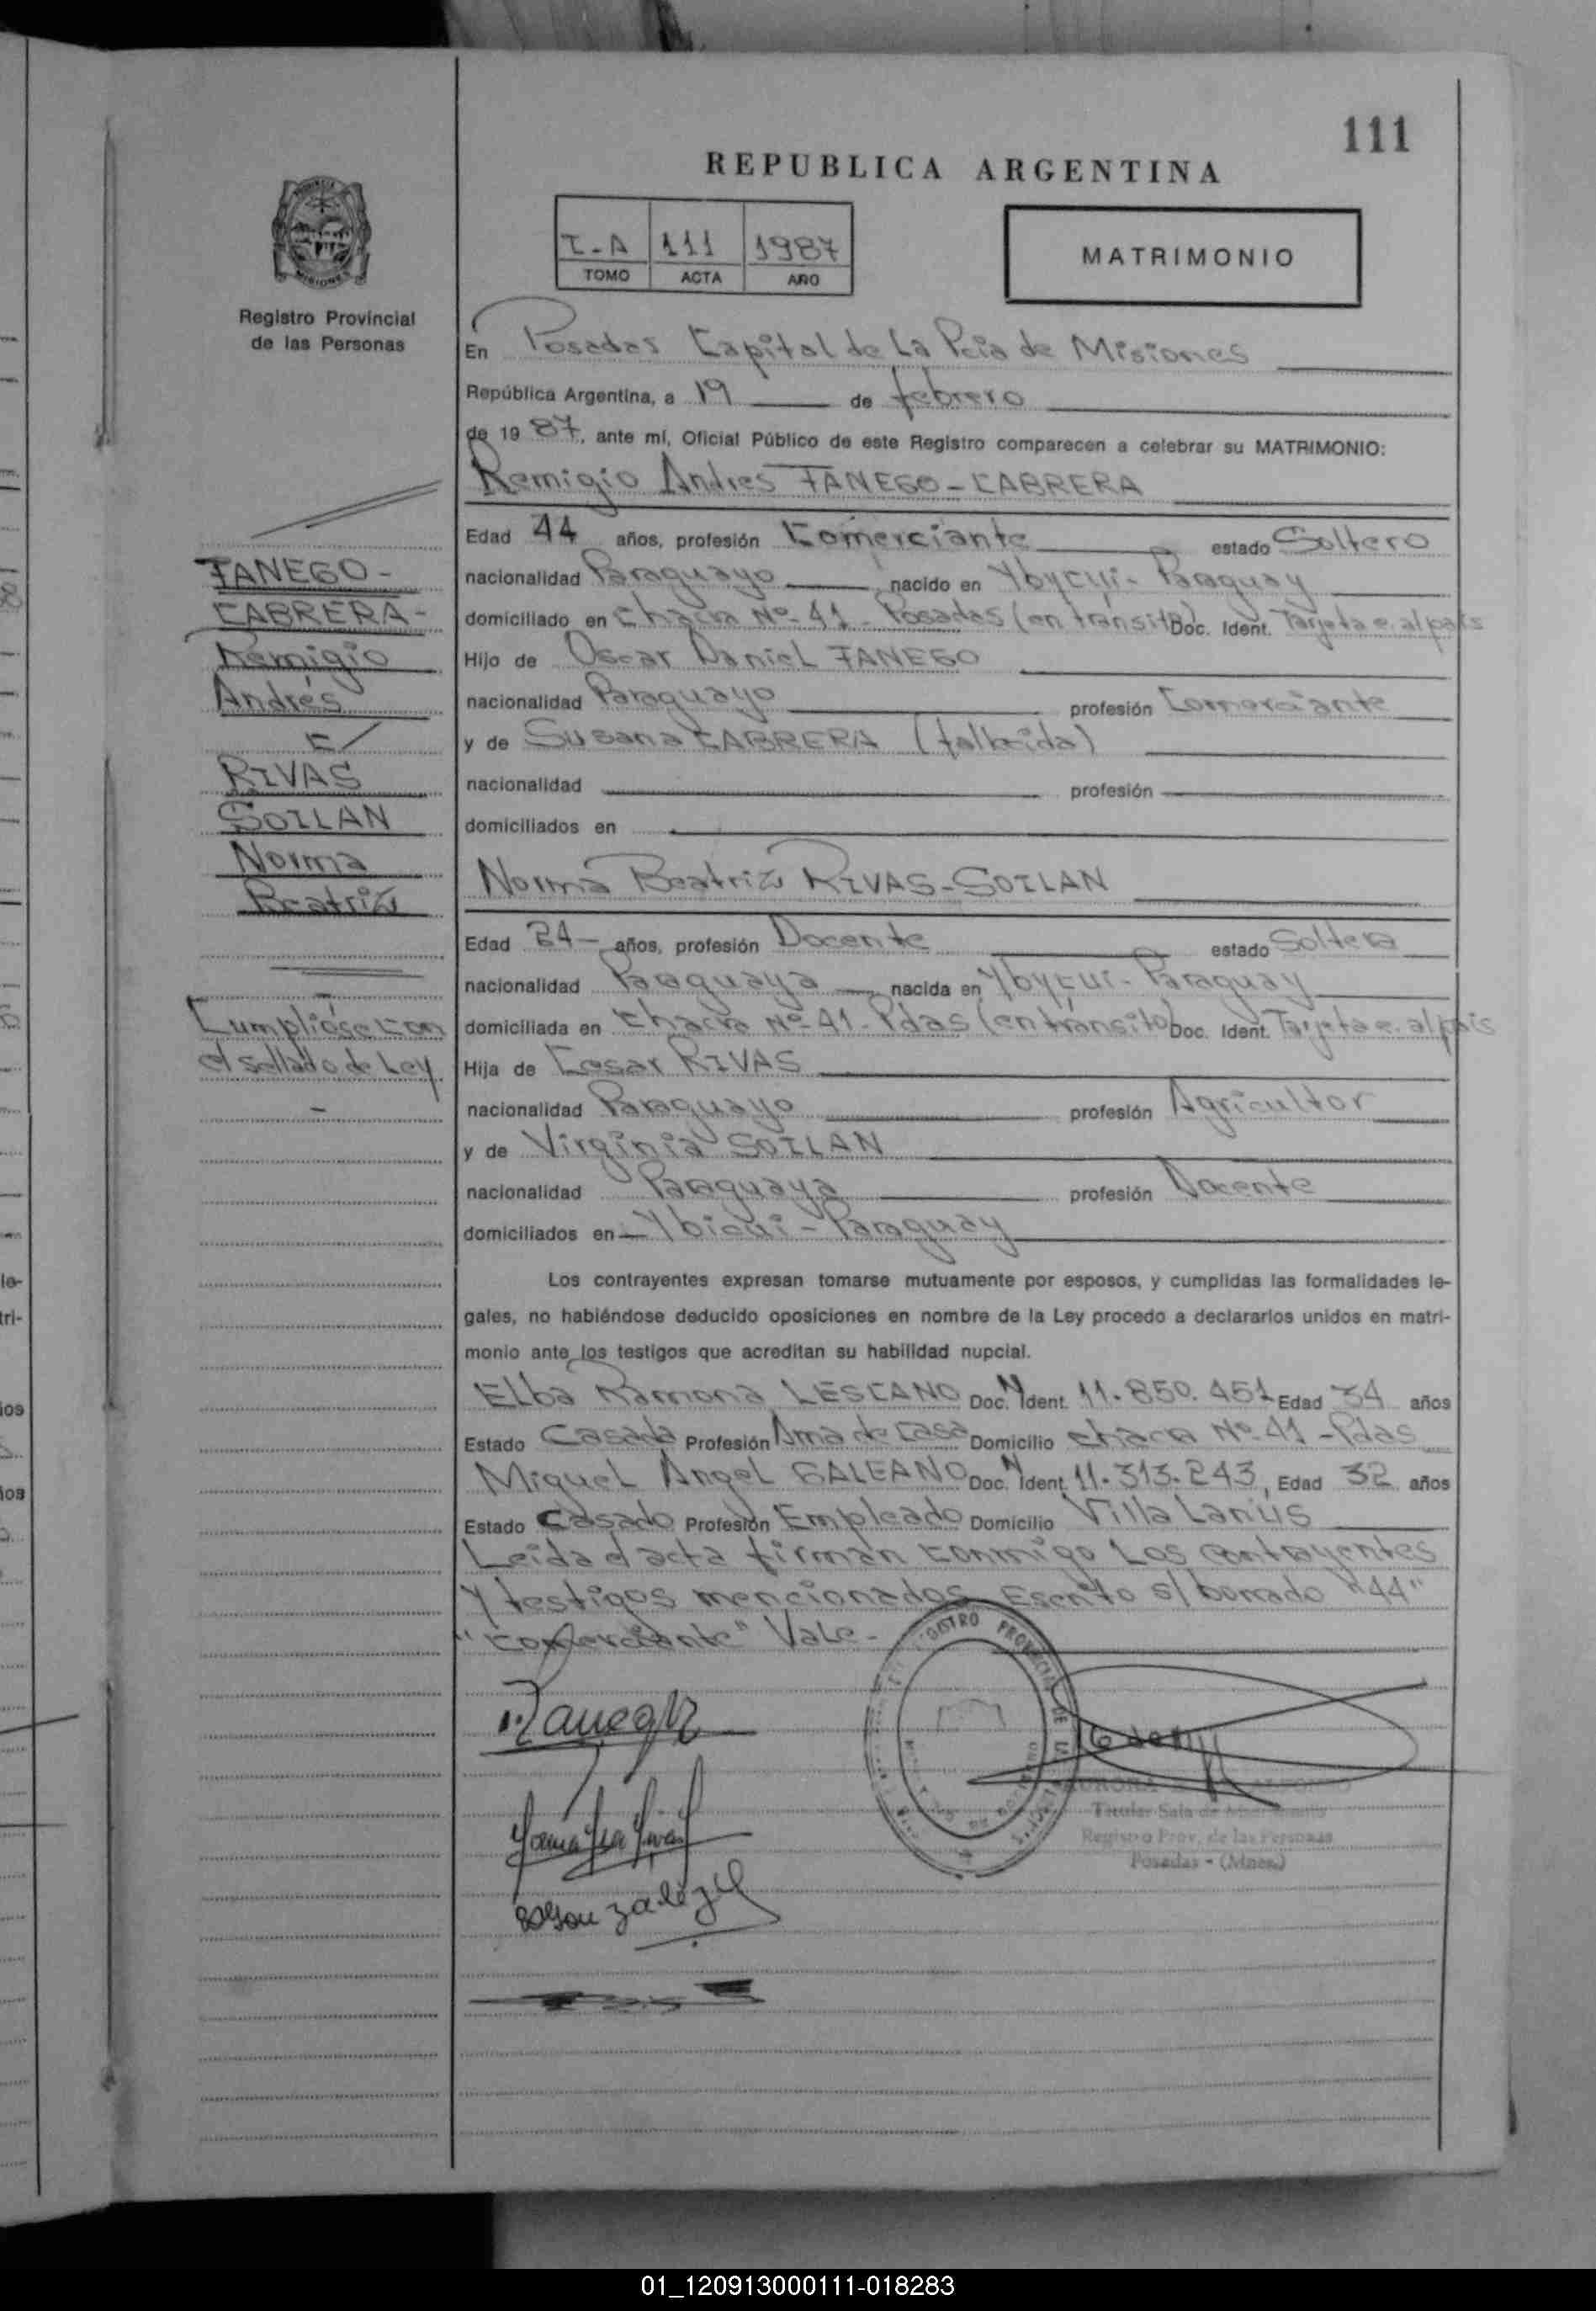 111
REPUBLICA ARGENTINA
I-A 111 1987
TOMO ACTA AÑO
MATRIMONIO
MISIONES
Registro Provincial
de las Personas
En Posadas Capital de La Pcia de Misiones
República Argentina, a 19 de febrero
de 1987, ante mí, Oficial Público de este Registro comparecen a celebrar su MATRIMONIO:
Remigio Andres FANEGO-CABRERA
Edad 44 años, profesión Comerciante estado Soltero
nacionalidad Paraguayo, nacido en Ybycui-Paraguay
domiciliado en Chacra Nº-41-Posadas (en tránsito) Doc. Ident. Tarjeta e. al país
Hijo de Oscar Daniel FANEGO
nacionalidad Paraguayo profesión Comerciante
y de Susana CABRERA (fallecida)
nacionalidad profesión
domiciliados en
Norma Beatriz RIVAS-SOILAN
Edad 24- años, profesión Docente estado Soltera
nacionalidad Paraguaya, nacida en Ybycui-Paraguay
domiciliada en Chacra Nº-41-Pdas (en tránsito) Doc. Ident. Tarjeta e. al país
Hija de Cesar RIVAS
nacionalidad Paraguayo profesión Agricultor
y de Virginia SOILAN
nacionalidad Paraguaya profesión Docente
domiciliados en Ybicui-Paraguay
Los contrayentes expresan tomarse mutuamente por esposos, y cumplidas las formalidades le-
gales, no habiéndose deducido oposiciones en nombre de la Ley procedo a declararlos unidos en matri-
monio ante los testigos que acreditan su habilidad nupcial.
Elba Ramona LESCANO Doc. N Ident. 11.850.451 Edad 34 años
Estado Casada Profesión Ama de Casa Domicilio Chacra Nº-41-Pdas
Miguel Angel GALEANO Doc. N Ident. 11.313.243, Edad 32 años
Estado Casado Profesión Empleado Domicilio Villa Lanús
Leida el acta firman conmigo Los contrayentes
y testigos mencionados Escrito s/borrado "44"
"Comerciante" Vale-
FANEGO-
CABRERA-
Remigio
Andrés
c/
RIVAS
SOILAN
Norma
Beatriz
Cumplióse con
el sellado de Ley
REGISTRO PROVINCIAL DE LAS
Titular Sala de
Registro Prov. de las Personas
Posadas - (Mnes.)
01_120913000111-018283